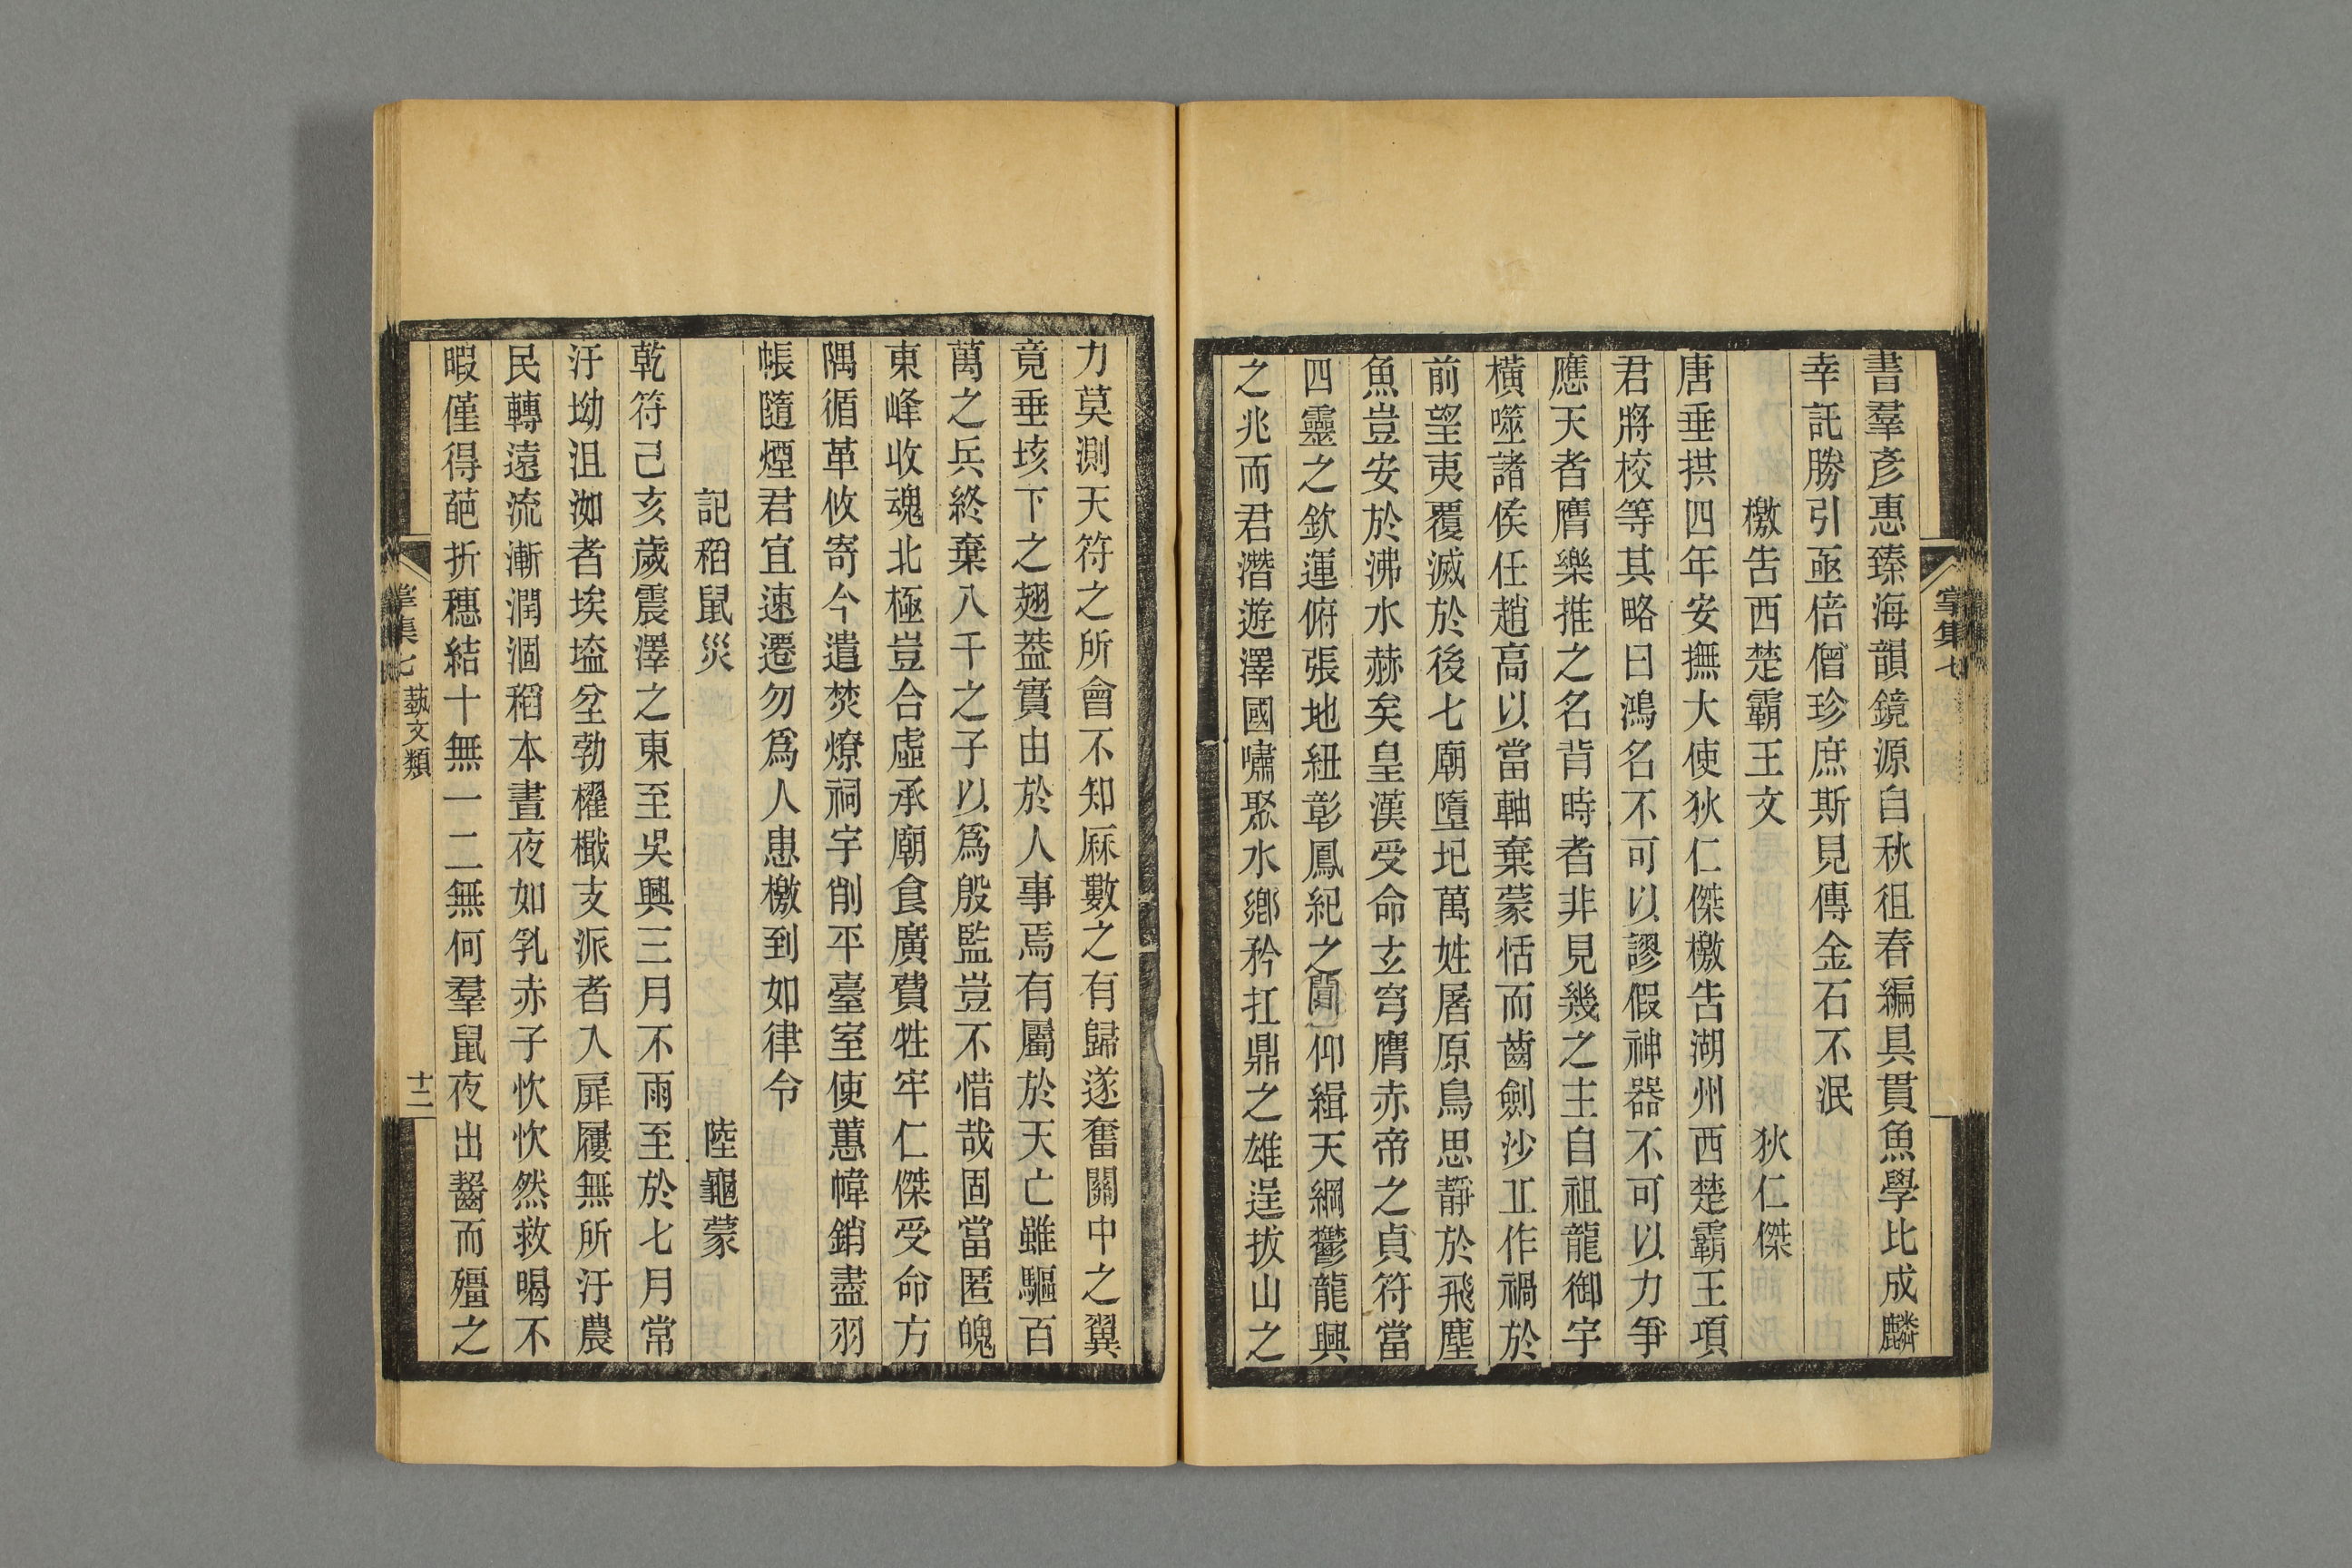 書羣彥惠臻海韻鏡源自秋徂春編具貫魚學比成麟
幸託勝引亟倍僧珍庶斯見傳金石不泯
檄告西楚霸王文 狄仁傑
唐垂拱四年安撫大使狄仁傑檄告湖州西楚霸王項
君將校等其略曰鴻名不可以謬假神器不可以力爭
應天者膺樂推之名背時者非見幾之主自祖龍御宇
橫噬諸侯任趙高以當軸棄蒙恬而齒劍沙丘作禍於
前望夷覆滅於後七廟墮圯萬姓屠原鳥思靜於飛塵
魚豈安於沸水赫矣皇漢受命玄穹膺赤帝之貞符當
四靈之欽運俯張地紐彰鳳紀之仰緝天綱鬱龍興
之兆而君潛遊澤國嘯聚水鄉矜扛鼎之雄逞拔山之
掌集七
力莫測天符之所會不知厤數之有歸遂奮關中之翼
竟垂垓下之翅葢實由於人事焉有屬於天亡雖驅百
萬之兵終棄八千之子以爲殷監豈不惜哉固當匿魄
東峰收魂北極豈合虛承廟食廣費牲牢仁傑受命方
隅循革攸寄今遣焚燎祠宇削平臺室使蕙幃銷盡羽
帳隨煙君宜速遷勿爲人患檄到如律令
記稻鼠災 陸龜蒙
乾符己亥歲震澤之東至吳興三月不雨至於七月常
汙坳沮洳者埃壒坌勃櫂檝支派者入扉屨無所汙農
民轉遠流漸潤涸稻本晝夜如乳赤子忺忺然救暍不
暇僅得葩折穗結十無一二無何羣鼠夜出齧而殭之
掌集七 藝文類 十二